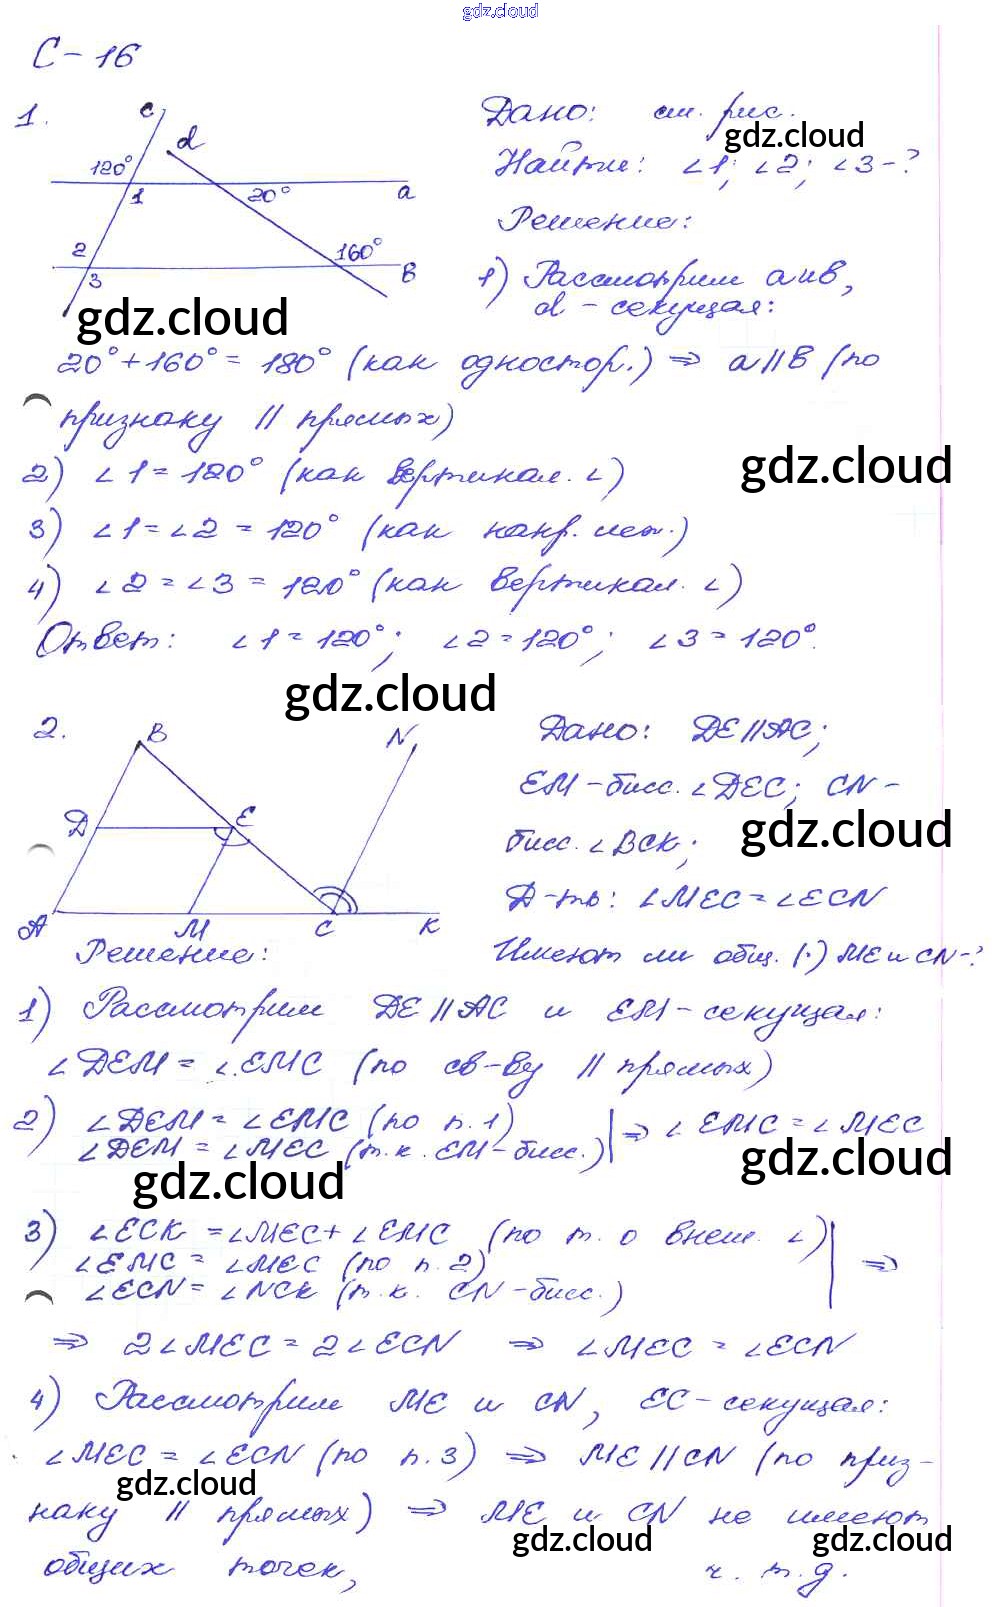 gdz.cloud
С-16
1.
c
d
120°
1
20°
a
2
3
160°
в
Дано: см. рис.
gdz.cloud
Найти: ∠1; ∠2; ∠3-?
Решение:
1) Рассмотрим a и в,
d - секущая:
gdz.cloud
20°+160°= 180° (как одностор.) ⇒ a||в (по
признаку || прямых)
gdz.cloud
2) ∠1=120° (как вертикал. ∠)
3) ∠1=∠2=120° (как накр. леж.)
4) ∠2=∠3=120° (как вертикал. ∠)
Ответ: ∠1=120°; ∠2=120°; ∠3=120°.
gdz.cloud
2.
B
N
Д
E
A
M
C
K
Дано: ДE||AC;
EM-бисс. ∠ДEC; CN-
gdz.cloud
бисс. ∠BCK;
Д-ть: ∠MEC=∠ECN
Имеют ли общ. (·) ME и CN-?
Решение:
1) Рассмотрим ДE||AC и EM-секущая:
∠ДEM=∠EMC (по св-ву || прямых)
2) ∠ДEM=∠EMC (по п.1)
∠ДEM=∠MEC (т.к. EM-бисс.) ⇒ ∠EMC=∠MEC
gdz.cloud
gdz.cloud
3) ∠ECK=∠MEC+∠EMC (по т. о внеш. ∠)
∠EMC=∠MEC (по п.2) ⇒
∠ECN=∠NCK (т.к. CN-бисс.)
⇒ 2∠MEC=2∠ECN ⇒ ∠MEC=∠ECN
4) Рассмотрим ME и CN, EC-секущая:
∠MEC=∠ECN (по п.3) ⇒ ME||CN (по приз-
gdz.cloud
наку || прямых) ⇒ ME и CN не имеют
gdz.cloud
gdz.cloud
общих точек,
ч.т.д.